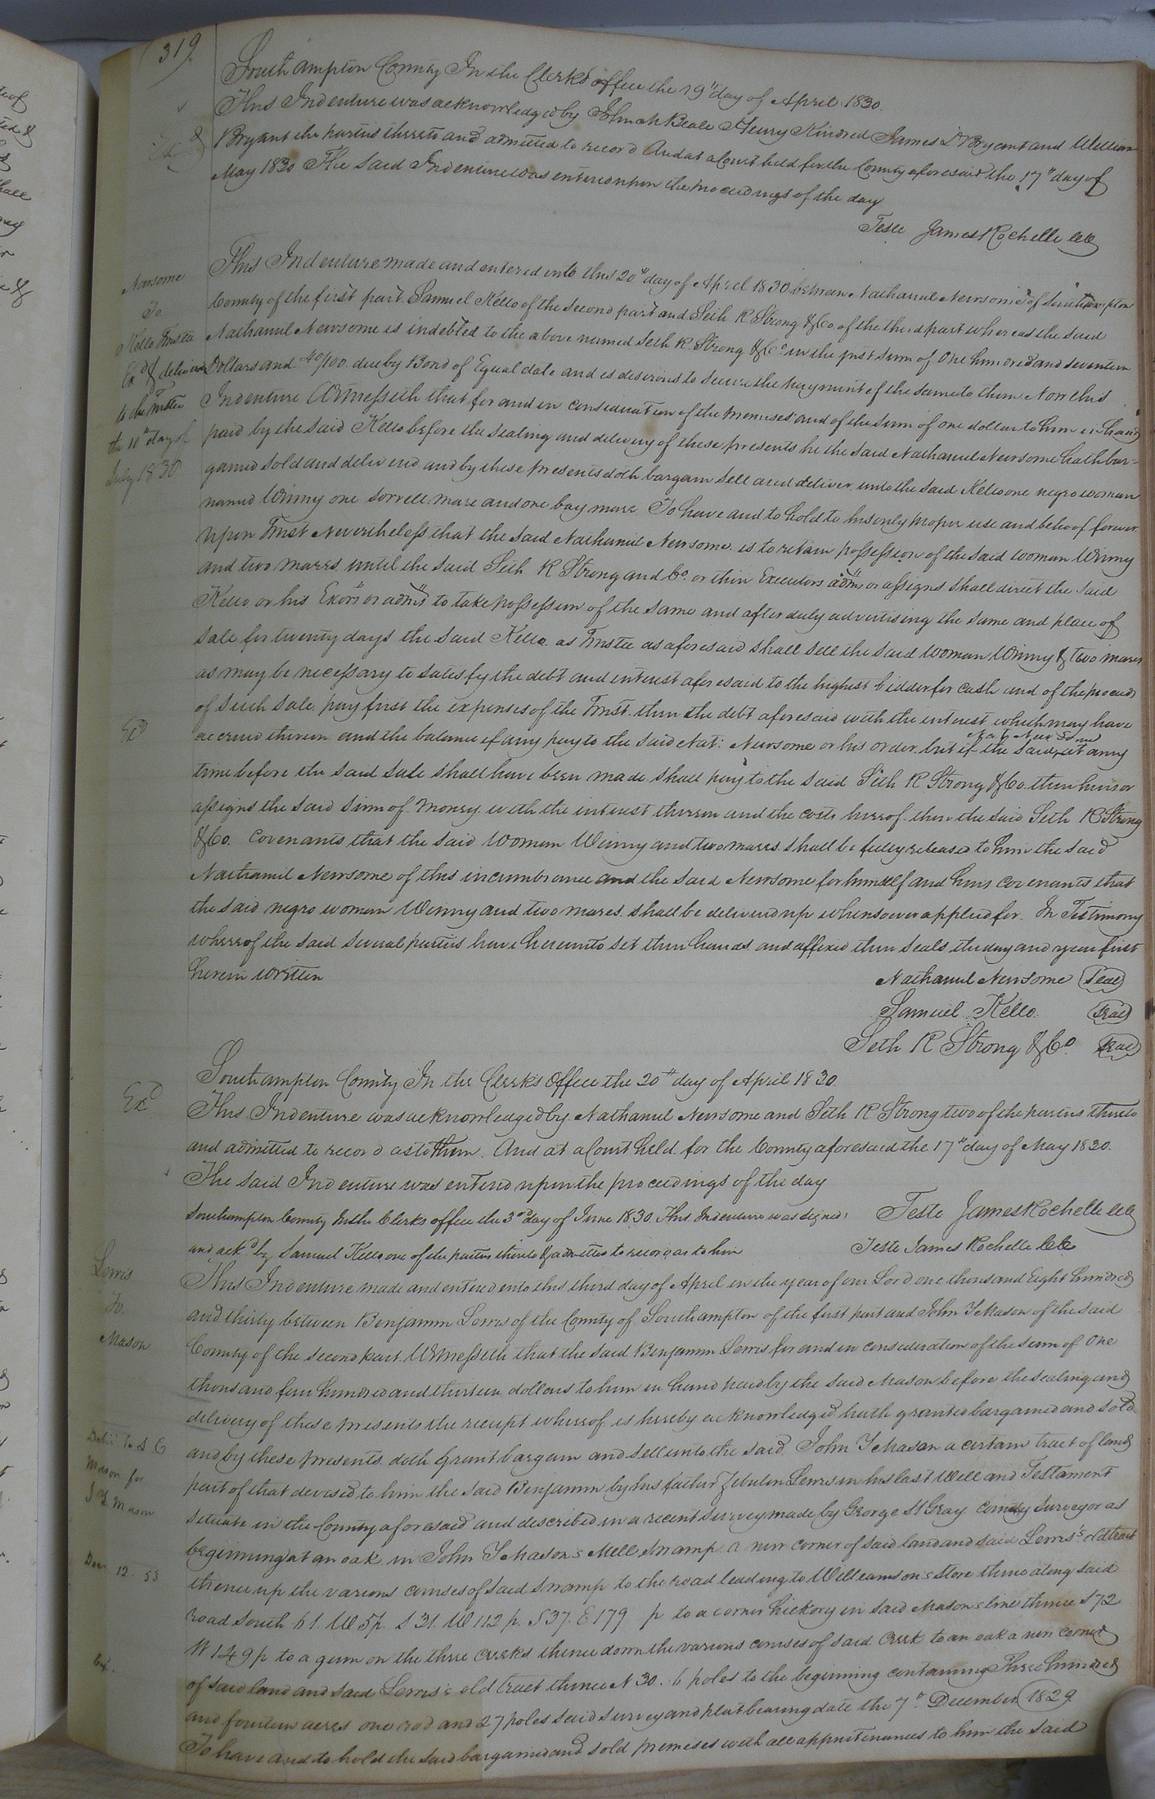 319
Southampton County In the Clerk's office the 19th day of April 1830.
This Indenture was acknowledged by John M Beale Henry Kindred James D Bryant and William
Bryant the parties thereto and admitted to record And at a Court held for the County aforesaid the 17th day of
May 1830 The said Indenture was entered upon the proceedings of the day
Teste James Rochelle CC
Newsome
To
Kello Trustee
Exd & delivered
to the Trustee
the 11th day of
July 1830
This Indenture made and entered into this 20th day of April 1830 between Nathaniel Newsome of Southampton
County of the first part Samuel Kello of the second part and Seth R Strong & Co of the third part whereas the said
Nathaniel Newsome is indebted to the above named Seth R Strong & Co in the just sum of One hundred and seventeen
Dollars and 40/100 due by Bond of Equal date and is desirous to secure the payment of the same to them Now this
Indenture Witnesseth that for and in consideration of the premises and of the sum of one dollar to him in hand
paid by the said Kello before the sealing and delivery of these presents he the said Nathaniel Newsome hath bar-
gained sold and delivered and by these presents doth bargain sell and deliver unto the said Kello one negro woman
named Winny one sorrell mare and one bay mare To have and to hold to his only proper use and behoof forever
Upon Trust Nevertheless that the said Nathaniel Newsome is to retain possession of the said woman Winny
and two mares until the said Seth R Strong and Co. or their Executors adms or assigns shall direct the said
Kello or his Exors or adms to take possession of the same and after duly advertising the same and place of
sale for twenty days the said Kello as Trustee as aforesaid shall sell the said woman Winny & two mares
as may be necessary to satisfy the debt and interest aforesaid to the highest bidder for cash and of the proceeds
of such sale pay first the expenses of the Trust then the debt aforesaid with the interest which may have
Exd
accrued thereon and the balance if any pay to the said Nat: Newsome or his order but if the said at any
time before the said sale shall have been made shall pay to the said Seth R Strong & Co. their heirs or
assigns the said sum of money with the interest thereon and the costs hereof then the said Seth R Strong
& Co. Covenants that the said woman Winny and two mares shall be fully released to him the said
Nathaniel Newsome of this incumbrance and the said Newsome for himself and heirs covenants that
the said negro woman Winny and two mares shall be delivered up whensoever applied for. In Testimony
whereof the said several parties have hereunto set their hands and affixed their seals the day and year first
herein written
Nathaniel Newsome Seal
Samuel Kello. Seal
Seth R Strong & Co. Seal
Southampton County In the Clerk's Office the 20th day of April 1830.
Exd
This Indenture was acknowledged by Nathaniel Newsome and Seth R Strong two of the parties thereto
and admitted to record as to them. And at a Court held for the County aforesaid the 17th day of May 1830.
The said Indenture was entered upon the proceedings of the day
Teste James Rochelle CC
Southampton County In the Clerks office the 3rd day of June 1830 This Indenture was signed
and ackd by Samuel Kello one of the parties thereto & admitted to record as to him
Teste James Rochelle CC
Lewis
To.
Mason
This Indenture made and entered into this third day of April in the year of our Lord one thousand Eight hundred
and thirty between Benjamin Lewis of the County of Southampton of the first part and John Y Mason of the said
County of the second part Witnesseth that the said Benjamin Lewis for and in consideration of the sum of One
thousand four hundred and thirteen dollars to him in hand paid by the said Mason before the sealing and
delivery of these presents the receipt whereof is hereby acknowledged hath granted bargained and sold
and by these presents doth grant bargain and sell unto the said John Y Mason a certain tract of land
part of that devised to him the said Benjamin by his father Zebulon Lewis in his last Will and Testament
Mason for
J Y. Mason
Decr 12. 53
situate in the County aforesaid and described in a recent survey made by George W Gray County Surveyor as
beginning at an oak in John Y Mason's Mill swamp a new corner of said land and said Lewis's old tract
thence up the various courses of said swamp to the road leading to Williamson's store thence along said
road South 61. W 5 p. S 31. W 112 p. S 37. E 179 p to a corner hickory in said Mason's line thence S 72
W 149 p to a gum on the three creeks thence down the various courses of said Creek to an oak a new corner
of said land and said Lewis's old tract thence N 30. 6 poles to the beginning containing Three hundred
and fourteen acres one rod and 27 poles said survey and plat bearing date the 7th December 1829
To have and to hold the said bargained and sold premises with all appurtenances to him the said